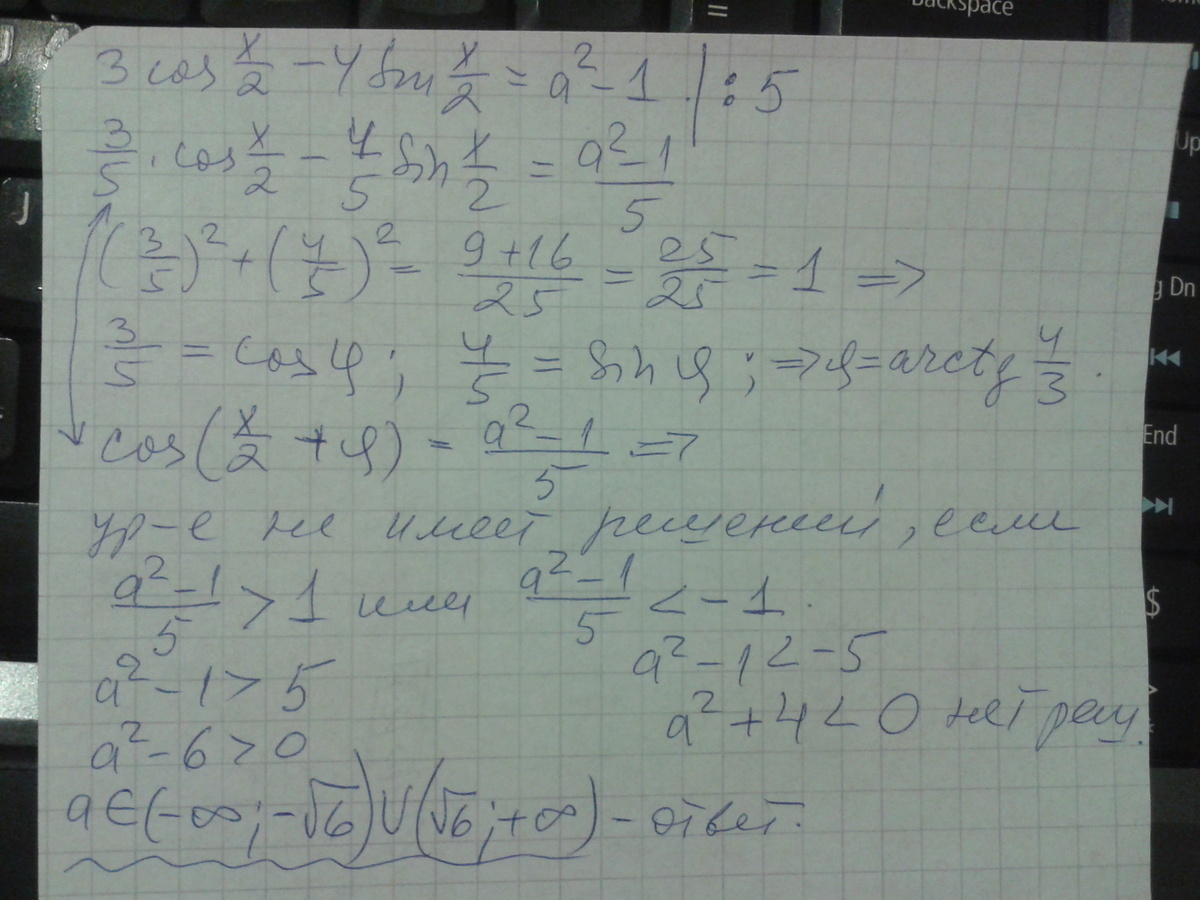 = Backspace
3 cos x/2 - 4 sin x/2 = a² - 1 | : 5
3/5 · cos x/2 - 4/5 sin x/2 = (a² - 1)/5
Up
J
(3/5)² + (4/5)² = (9+16)/25 = 25/25 = 1 =>
g Dn
3/5 = cos φ; 4/5 = sin φ; => φ = arctg 4/3.
cos(x/2 + φ) = (a² - 1)/5 =>
End
ур-е не имеет решений, если
(a² - 1)/5 > 1 или (a² - 1)/5 < -1.
$
a² - 1 > 5 a² - 1 < -5
a² - 6 > 0 a² + 4 < 0 нет реш.
a ∈ (-∞; -√6) ∪ (√6; +∞) - ответ.